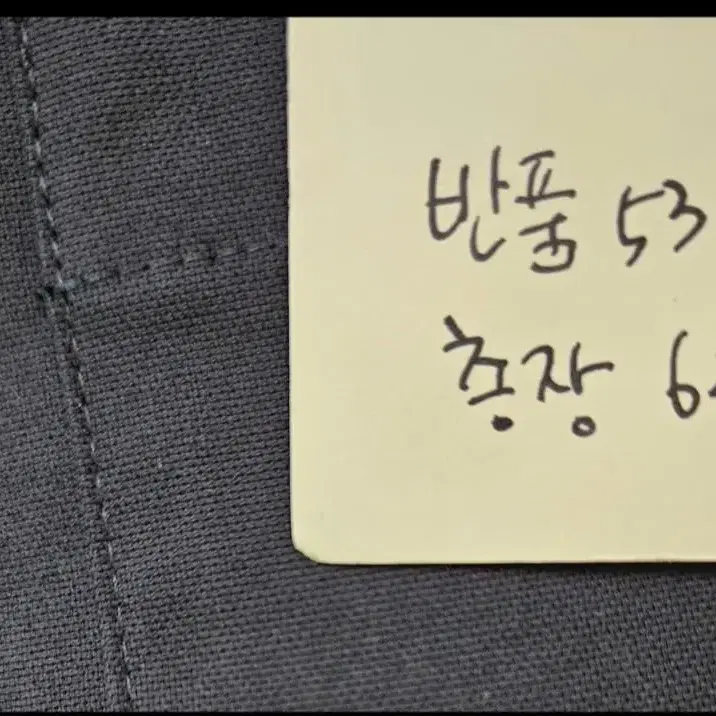 반품 53
총장 6